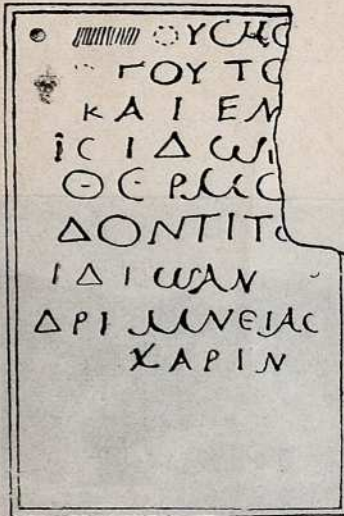 ΟΥϹΗϹ
ΓΟΥ ΤΟ
ΚΑΙ ΕΝ
ΪϹΙΔΩΙ
ΘΕΡΜΩ
ΔΟΝΤΙΤΩ
ΙΔΙΩΑΝ
ΔΡΙ ΜΝΕΙΑϹ
ΧΑΡΙΝ